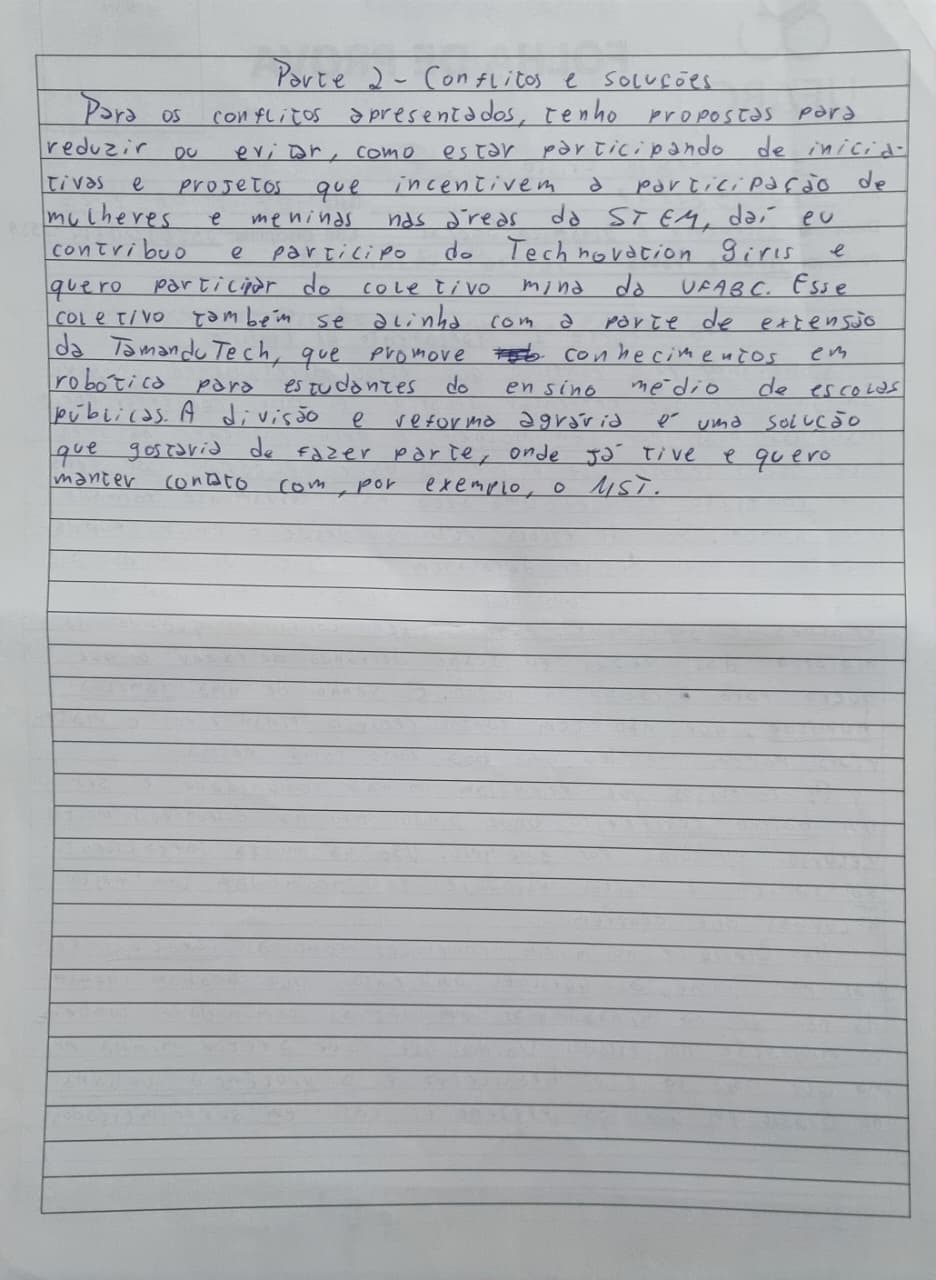 Parte 2 - Conflitos e soluções
Para os conflitos apresentados, tenho propostas para
reduzir ou evitar, como estar participando de inicia-
tivas e projetos que incentivem a participação de
mulheres e meninas nas áreas da STEM, daí eu
contribuo e participo do Technovation Girls e
quero participar do coletivo mina da UFABC. Esse
coletivo também se alinha com a parte de extensão
da TamanduTech, que promove conhecimentos em
robótica para estudantes do ensino médio de escolas
públicas. A divisão e reforma agrária é uma solução
que gostaria de fazer parte, onde já tive e quero
manter contato com, por exemplo, o MST.